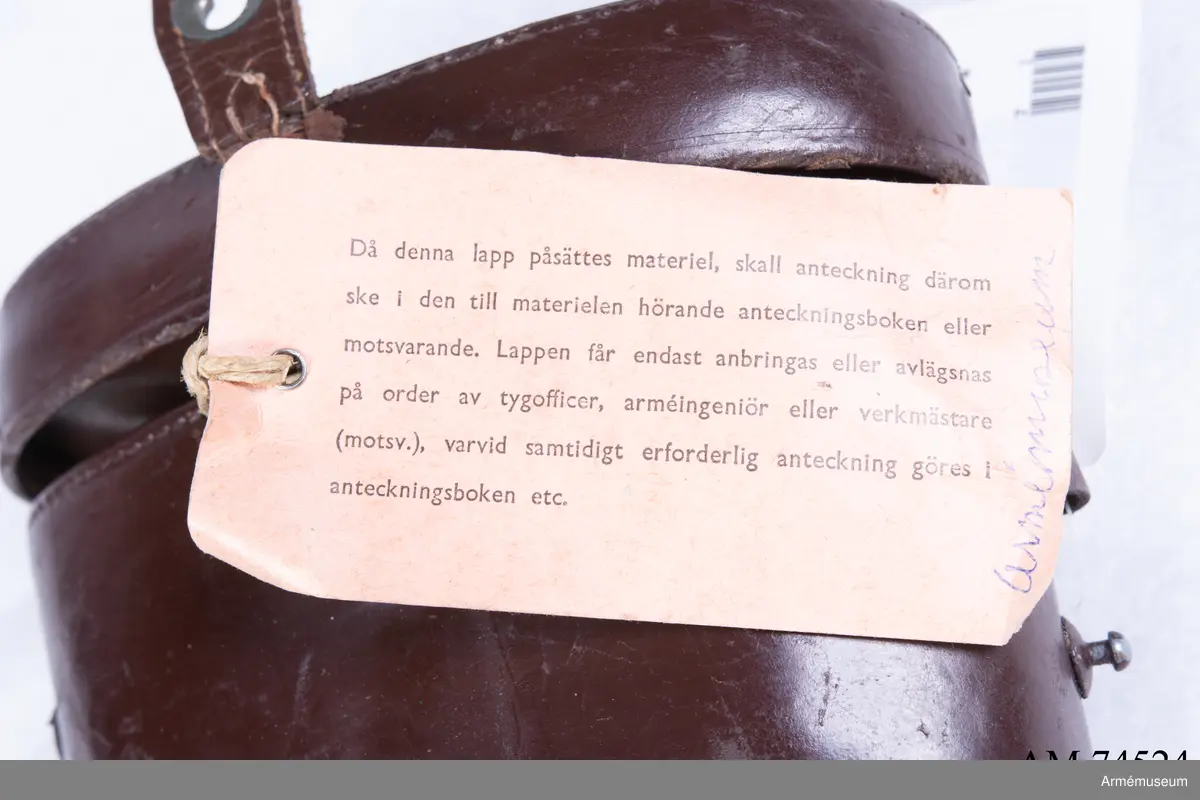 Då denna lapp påsättes materiel, skall anteckning därom
ske i den till materielen hörande anteckningsboken eller
motsvarande. Lappen får endast anbringas eller avlägsnas
på order av tygofficer, arméingeniör eller verkmästare
(motsv.), varvid samtidigt erforderlig anteckning göres i
anteckningsboken etc.
Armémuseum
AM 74524
Armémuseum